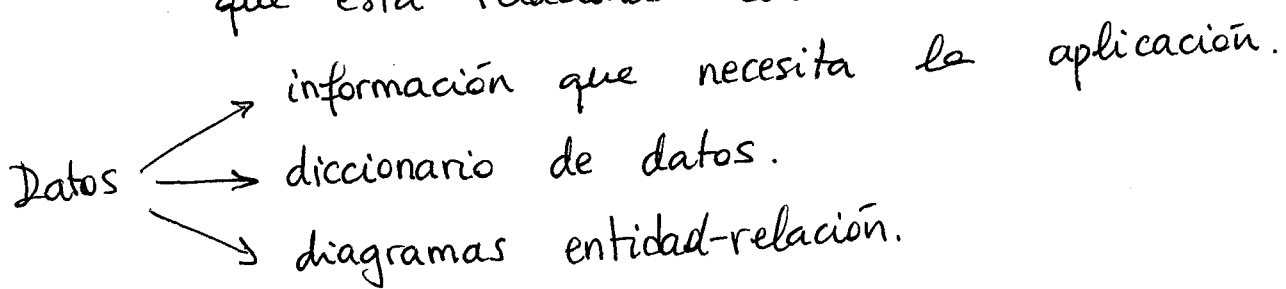 que está
información que necesita la aplicación.
Datos → diccionario de datos.
diagramas entidad-relación.